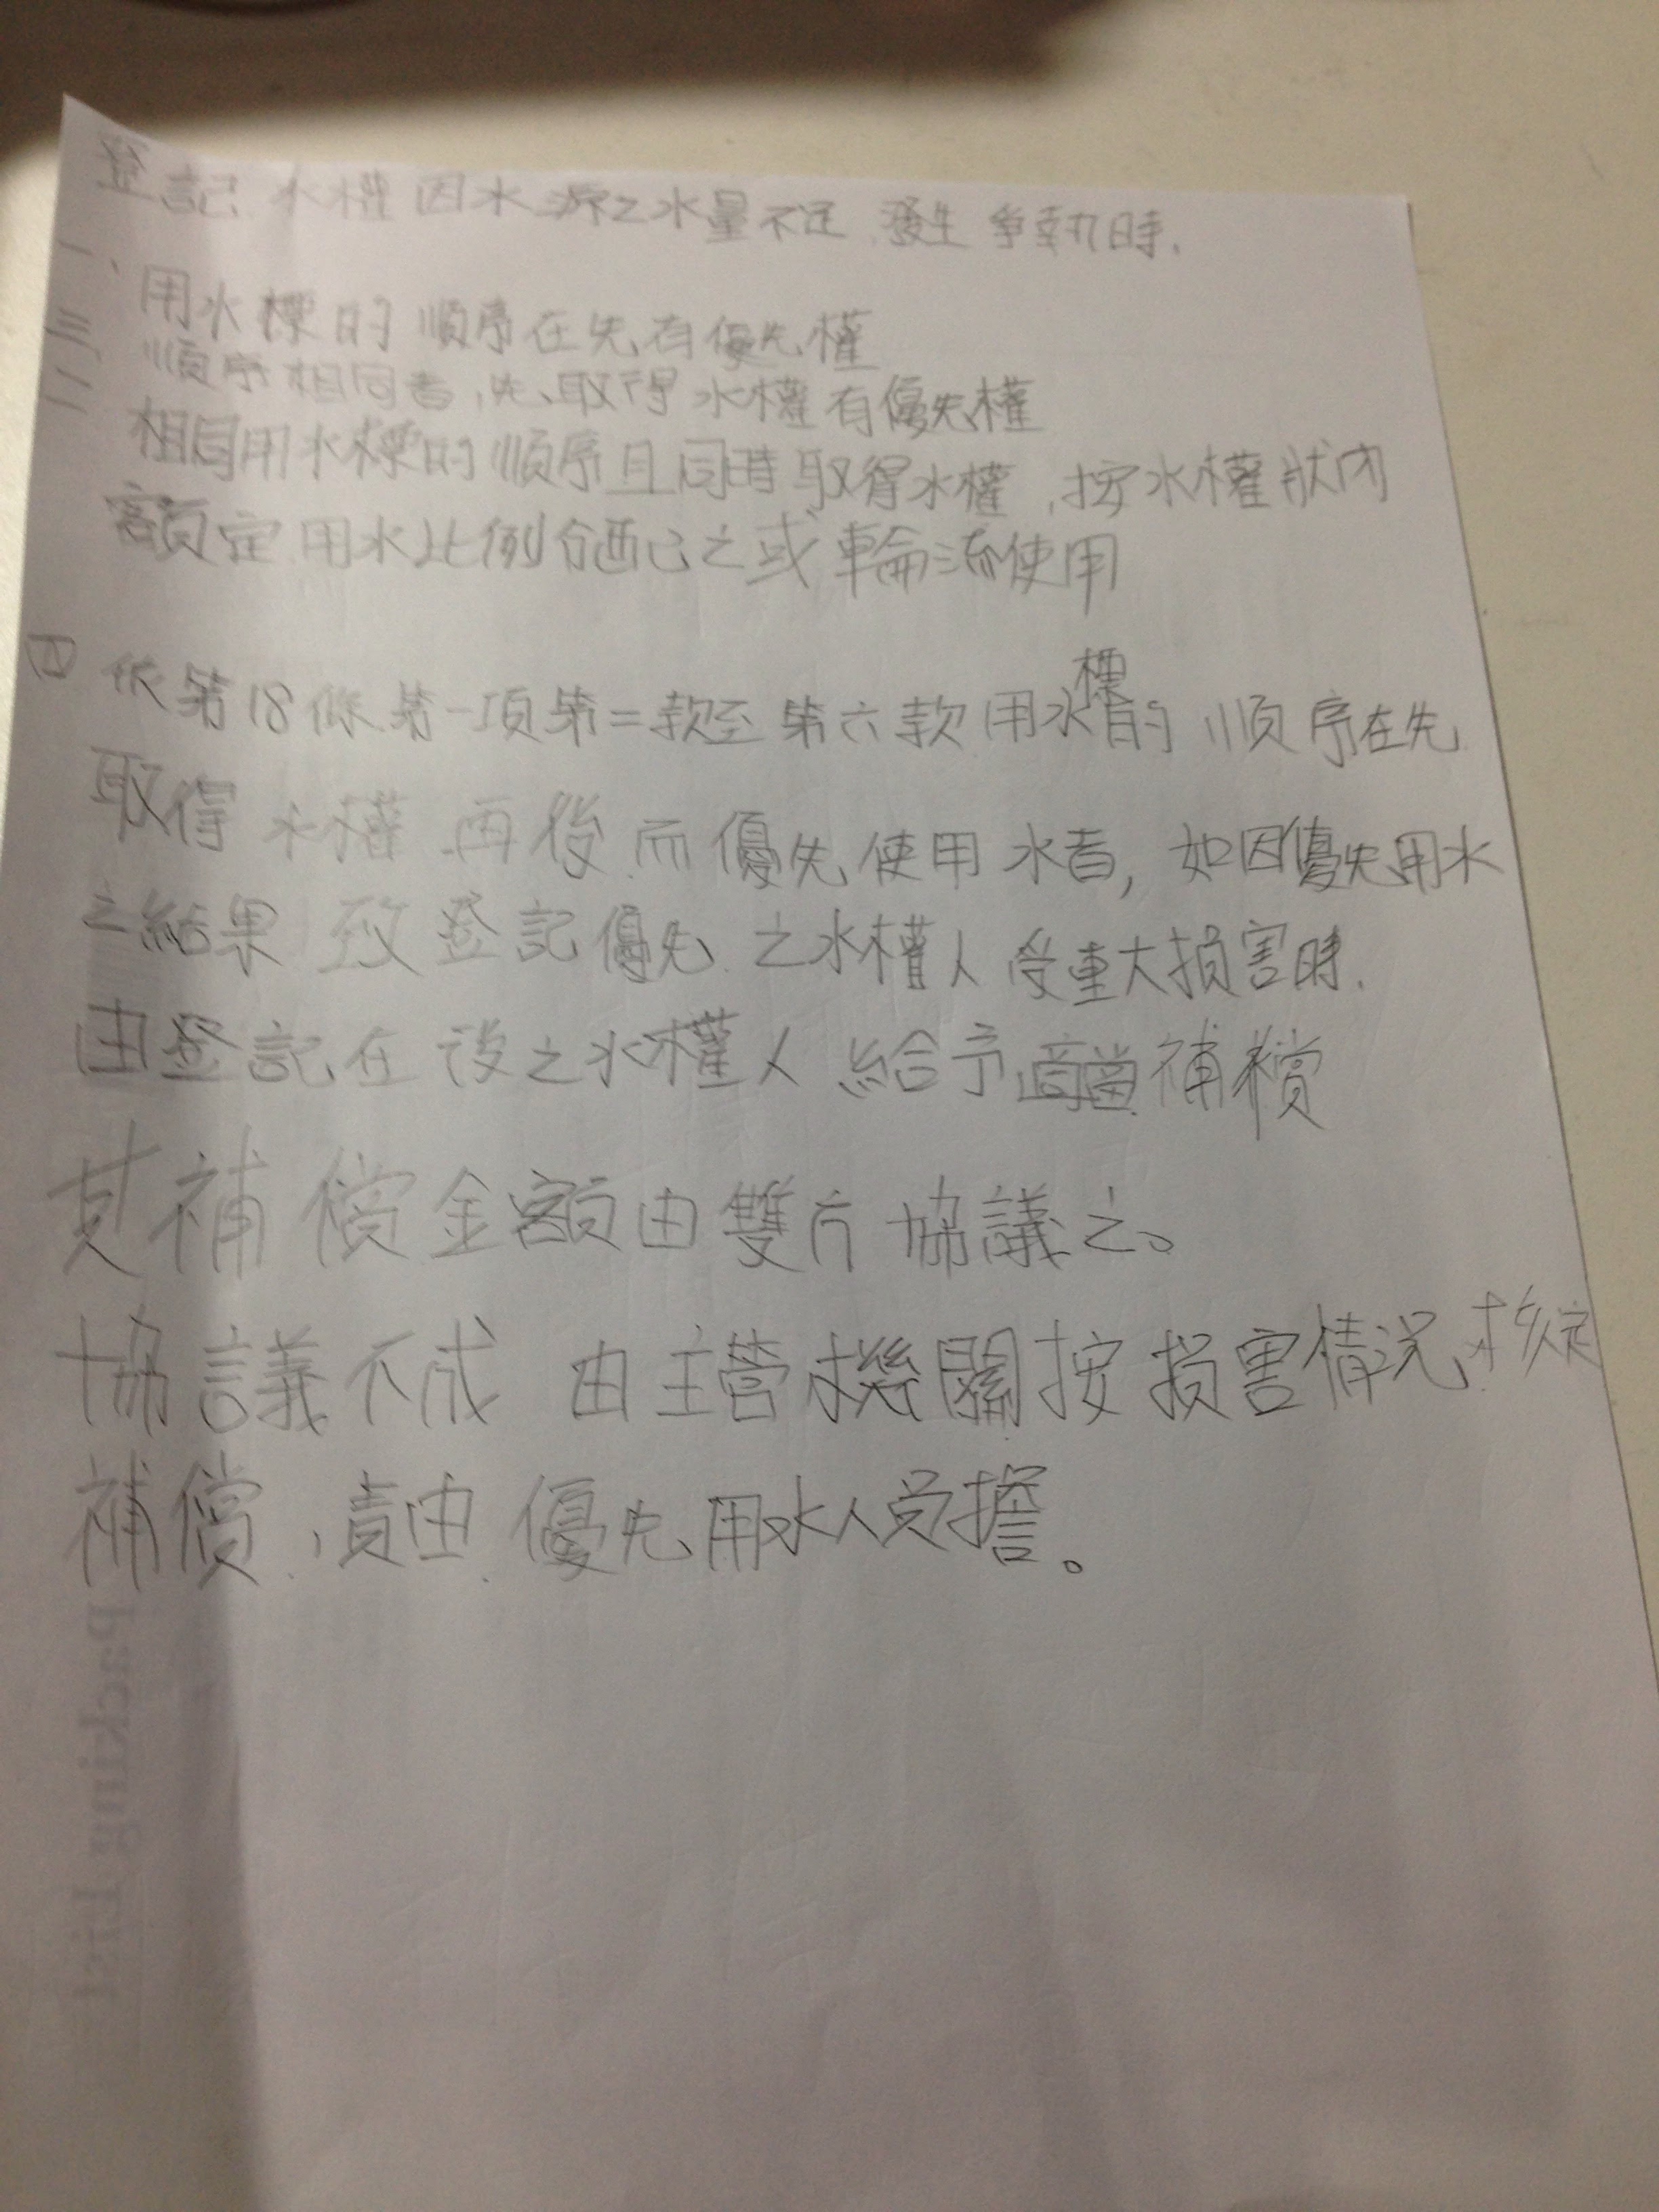 登記水權因水源之水量不足,發生爭執時,
一、用水標的順序在先有優先權
三、順序相同者,先取得水權有優先權
二 相同用水標的順序且同時取得水權,按水權狀內
額定用水比例分配之或輪流使用
四 依第18條第一項第二款至第六款用水標的順序在先
取得水權再後而優先使用水者,如因優先用水
之結果致登記優先之水權人受重大損害時.
由登記在後之水權人給予適當補償
其補償金額由雙方協議之。
協議不成 由主管機關按損害情況核定
補償,責由優先用水人負擔。
Packing List